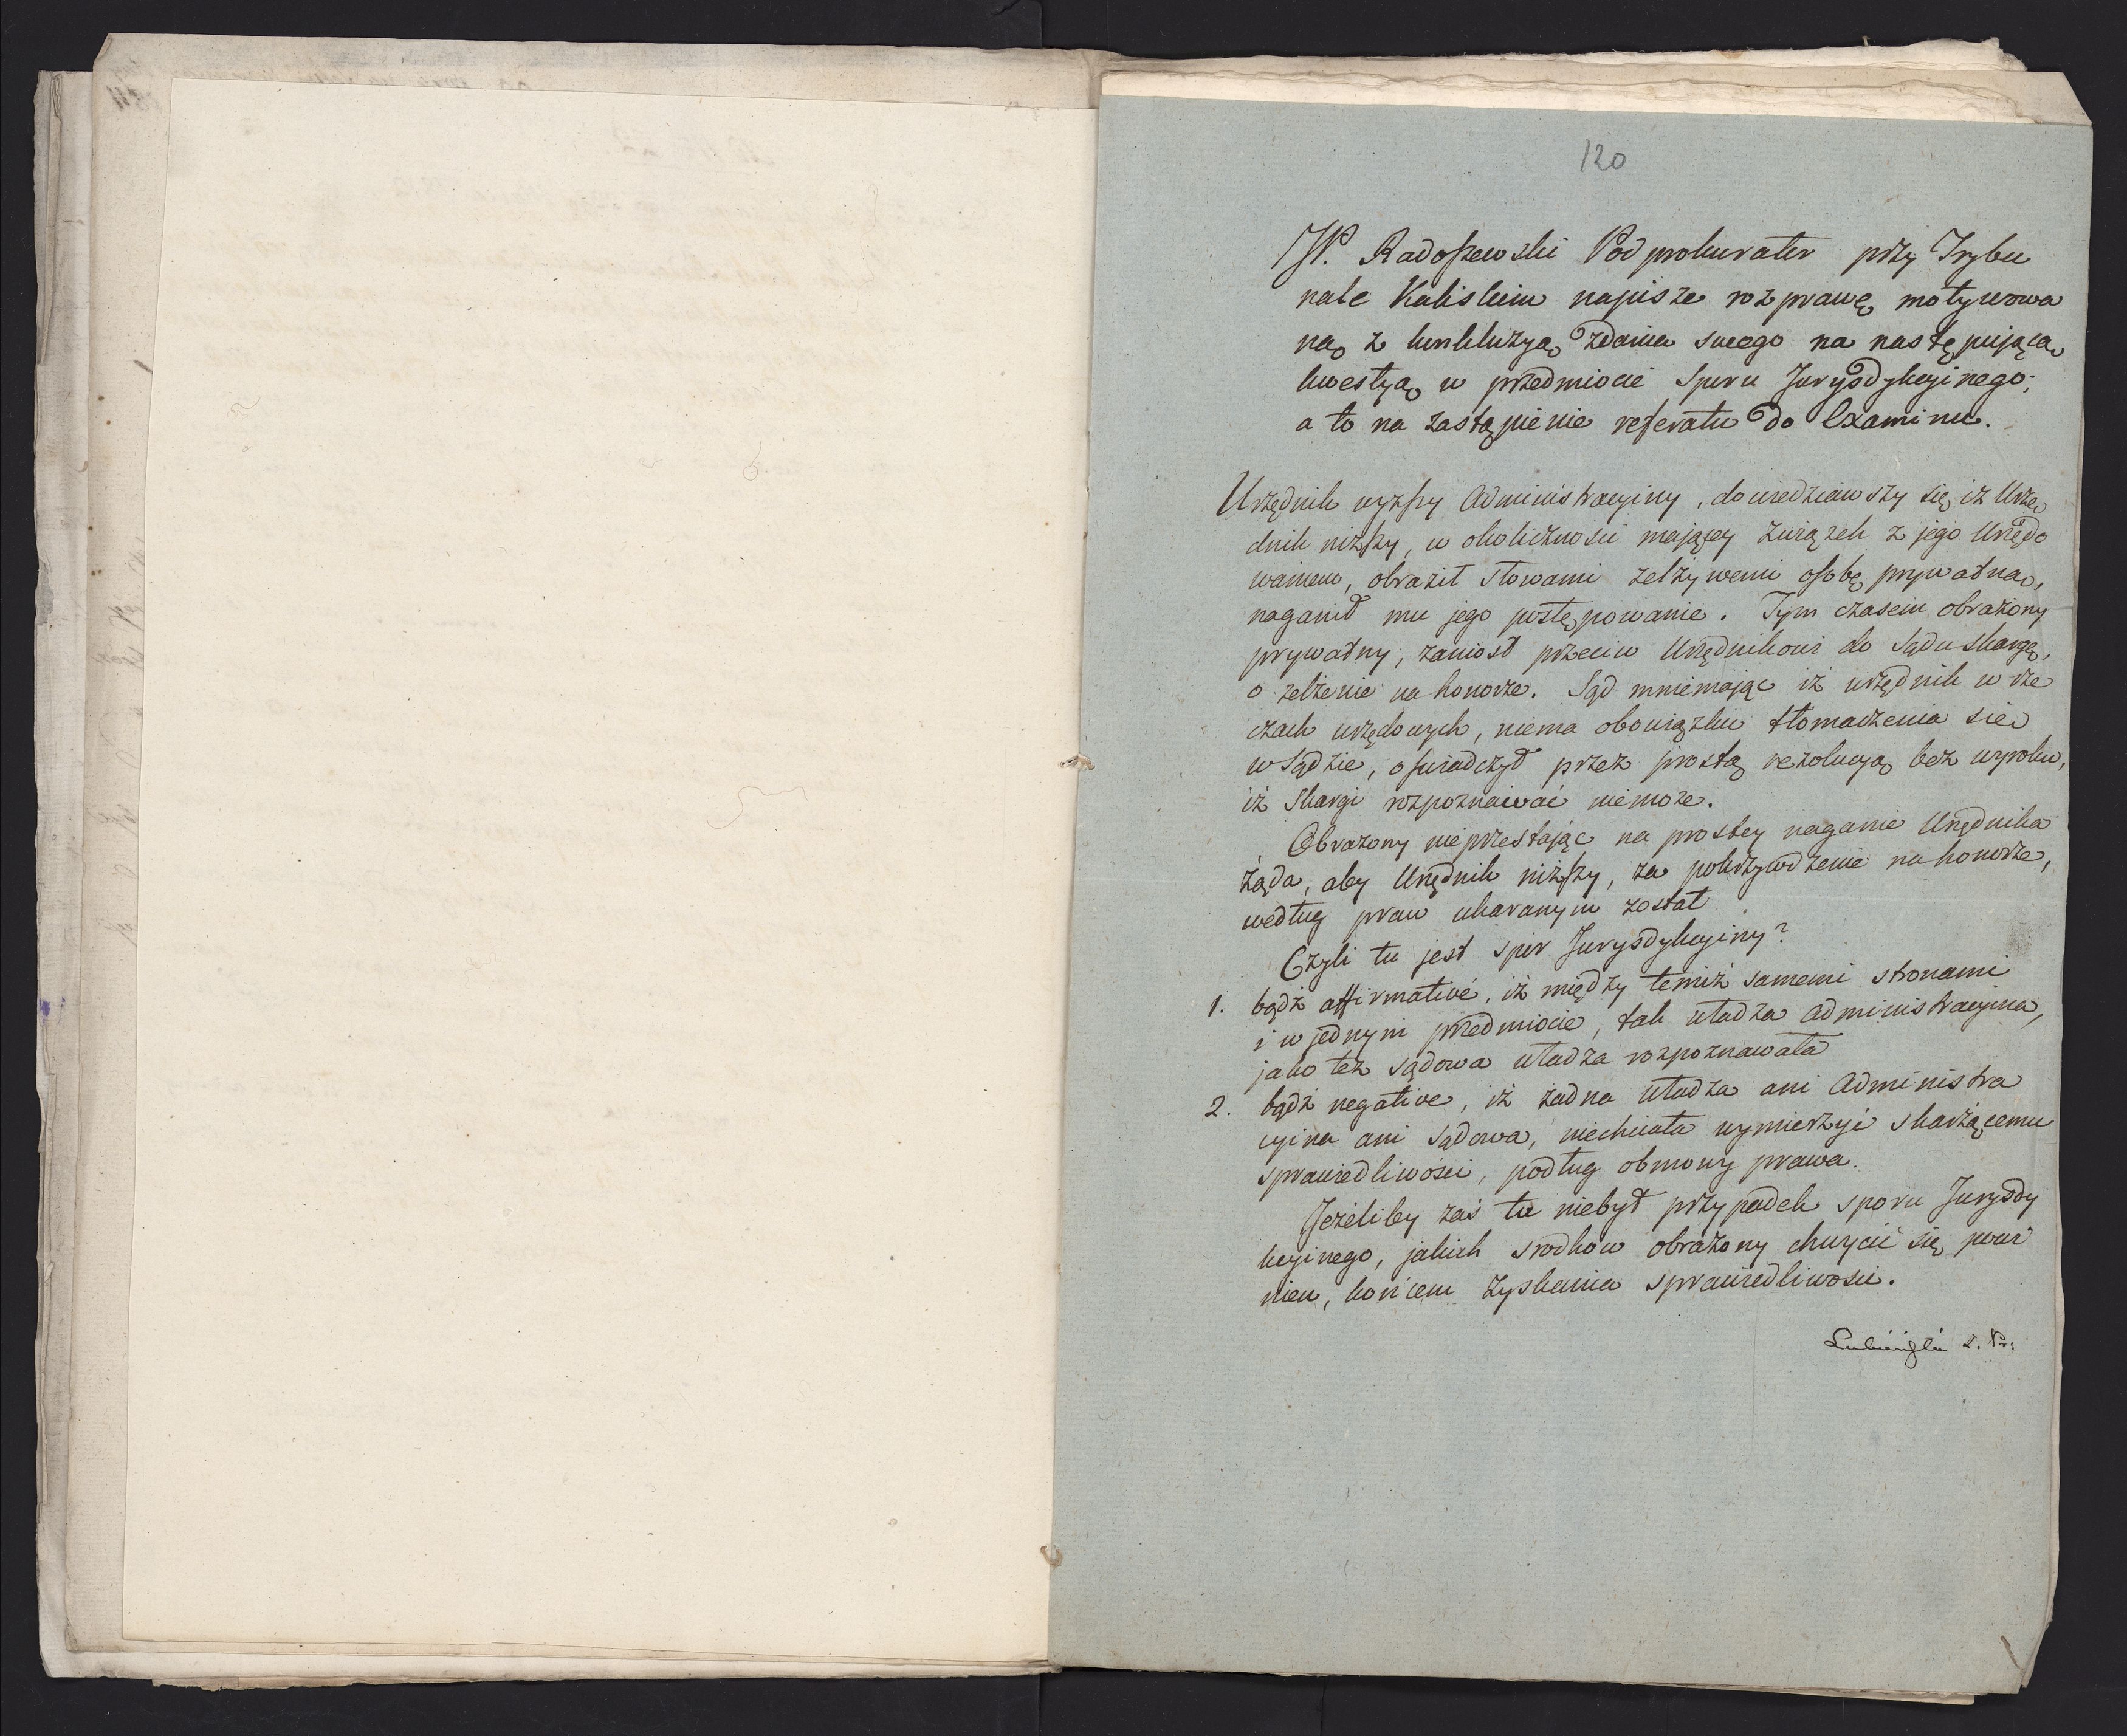 120
JP. Radoszewski Podprokurator przy Trybu
nale Kaliskim napisze rozprawę motywowa
ną z konkluzyą zdania swego na następującą
kwestyą w przedmiocie sporu Jurysdykcyinego;
a to na zastąpienie referatu do Examinu.
Urzędnik wyższy Administracyiny, dowiedziawszy się iż Urzę
dnik niższy, w okoliczności maiącey związek z jego Urzędo
waniem, obraził słowami zelżywemi osobę prywatną,
naganił mu jego postępowanie. Tym czasem obrażony
prywatny, zaniosł przeciw Urzędnikowi do Sądu skargę,
o zelżenie na honorze. Sąd mniemając iż urzędnik w rze
czach urzędowych, niema obowiązku tłomaczenia się
w Sądzie, oświadczył przez prostą rezolucyą bez wyroku,
iż Skargi rozpoznawać niemoże.
Obrażony nieprzestając na prostey naganie Urzędnika
żąda, aby Urzędnik niższy, za pokrzywdzenie na honorze,
według praw ukaranym został
Czyli tu jest spór Jurysdykcyiny?
1. bądź affirmativé, iż między temiż samemi stronami
i w jednym przedmiocie, tak władza administracyina,
jako też sądowa władza rozpoznawała
2. bądź negative, iż żadna władza ani Administra
cyina ani Sądowa, niechciała wymierzyć skarżącemu
sprawiedliwości, podług obmowy prawa.
Jeżeliby zaś tu niebył przypadek sporu Jurysdy
kcyinego, jakich srodków obrażony chwycić się powi
nien, końcem zyskania sprawiedliwości.